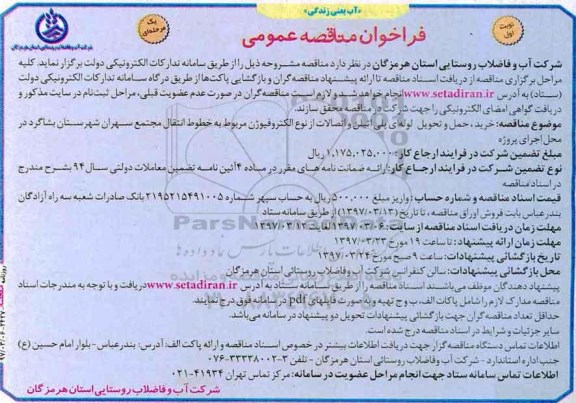 «آب یعنی زندگی»
نوبت اول
یک مرحله‌ای
فراخوان مناقصه عمومی
شرکت آب و فاضلاب روستایی استان هرمزگان
شرکت آب و فاضلاب روستایی استان هرمزگان در نظر دارد مناقصه مشروحه ذیل را از طریق سامانه تدارکات الکترونیکی دولت برگزار نماید. کلیه
مراحل برگزاری مناقصه از دریافت اسناد مناقصه تا ارائه پیشنهاد مناقصه گران و بازگشایی پاکت‌ها از طریق درگاه سامانه تدارکات الکترونیکی دولت
(ستاد) به آدرس www.setadiran.ir انجام خواهد شد و لازم است مناقصه گران در صورت عدم عضویت قبلی، مراحل ثبت‌نام در سایت مذکور و
دریافت گواهی امضای الکترونیکی را جهت شرکت در مناقصه محقق سازند.
موضوع مناقصه: خرید، حمل و تحویل لوله ی پلی اتیلن و اتصالات از نوع الکتروفیوژن مربوط به خطوط انتقال مجتمع سهران شهرستان بشاگرد در
محل اجرای پروژه
مبلغ تضمین شرکت در فرایند ارجاع کار: ۱,۱۷۵,۰۲۵,۰۰۰ ریال
نوع تضمین شرکت در فرایند ارجاع کار: ارائه ضمانت نامه های مقرر در ماده ۴ آئین نامه تضمین معاملات دولتی سال ۹۴ بشرح مندرج
در اسناد مناقصه
قیمت اسناد مناقصه و شماره حساب: واریز مبلغ ۵۰۰,۰۰۰ ریال به حساب سپهر شماره ۲۱۹۵۲۱۵۴۹۱۰۰۵ بانک صادرات شعبه سه راه آزادگان
بندرعباس بابت فروش اوراق مناقصه، تا تاریخ (۱۳۹۷/۰۳/۱۳) از طریق سامانه ستاد
مهلت زمان دریافت اسناد مناقصه از سایت: ۱۳۹۷/۰۳/۰۶ لغایت ۱۳۹۷/۰۳/۱۳
مهلت زمان ارائه پیشنهاد: تا ساعت ۱۹ مورخ ۱۳۹۷/۰۳/۲۳
تاریخ بازگشائی پیشنهادات: ساعت ۹ صبح مورخ ۱۳۹۷/۰۳/۲۴
محل بازگشائی پیشنهادات: سالن کنفرانس شرکت آب و فاضلاب روستائی استان هرمزگان
پیشنهاد دهندگان موظف می‌باشند اسناد مناقصه را از طریق سامانه ستاد به آدرس www.setadiran.ir دریافت و با توجه به مندرجات اسناد
مناقصه مدارک لازم را شامل پاکات الف، ب و ج تهیه و به صورت فایلهای pdf در سامانه فوق درج نمایند.
حداقل تعداد مناقصه گران جهت بازگشائی پیشنهادات تحویل دو پیشنهاد در سامانه می‌باشد.
سایر جزئیات و شرایط در اسناد مناقصه درج شده است.
اطلاعات تماس دستگاه مناقصه گزار جهت دریافت اطلاعات بیشتر در خصوص اسناد مناقصه و ارائه پاکت الف: آدرس: بندرعباس - بلوار امام حسین (ع)
جنب اداره استاندارد - شرکت آب و فاضلاب روستائی استان هرمزگان - تلفن ۳-۳۳۳۳۸۰۰۲-۰۷۶
اطلاعات تماس سامانه ستاد جهت انجام مراحل عضویت در سامانه: مرکز تماس تهران ۴۱۹۳۴-۰۲۱
شرکت آب و فاضلاب روستایی استان هرمزگان
ParsNamadData